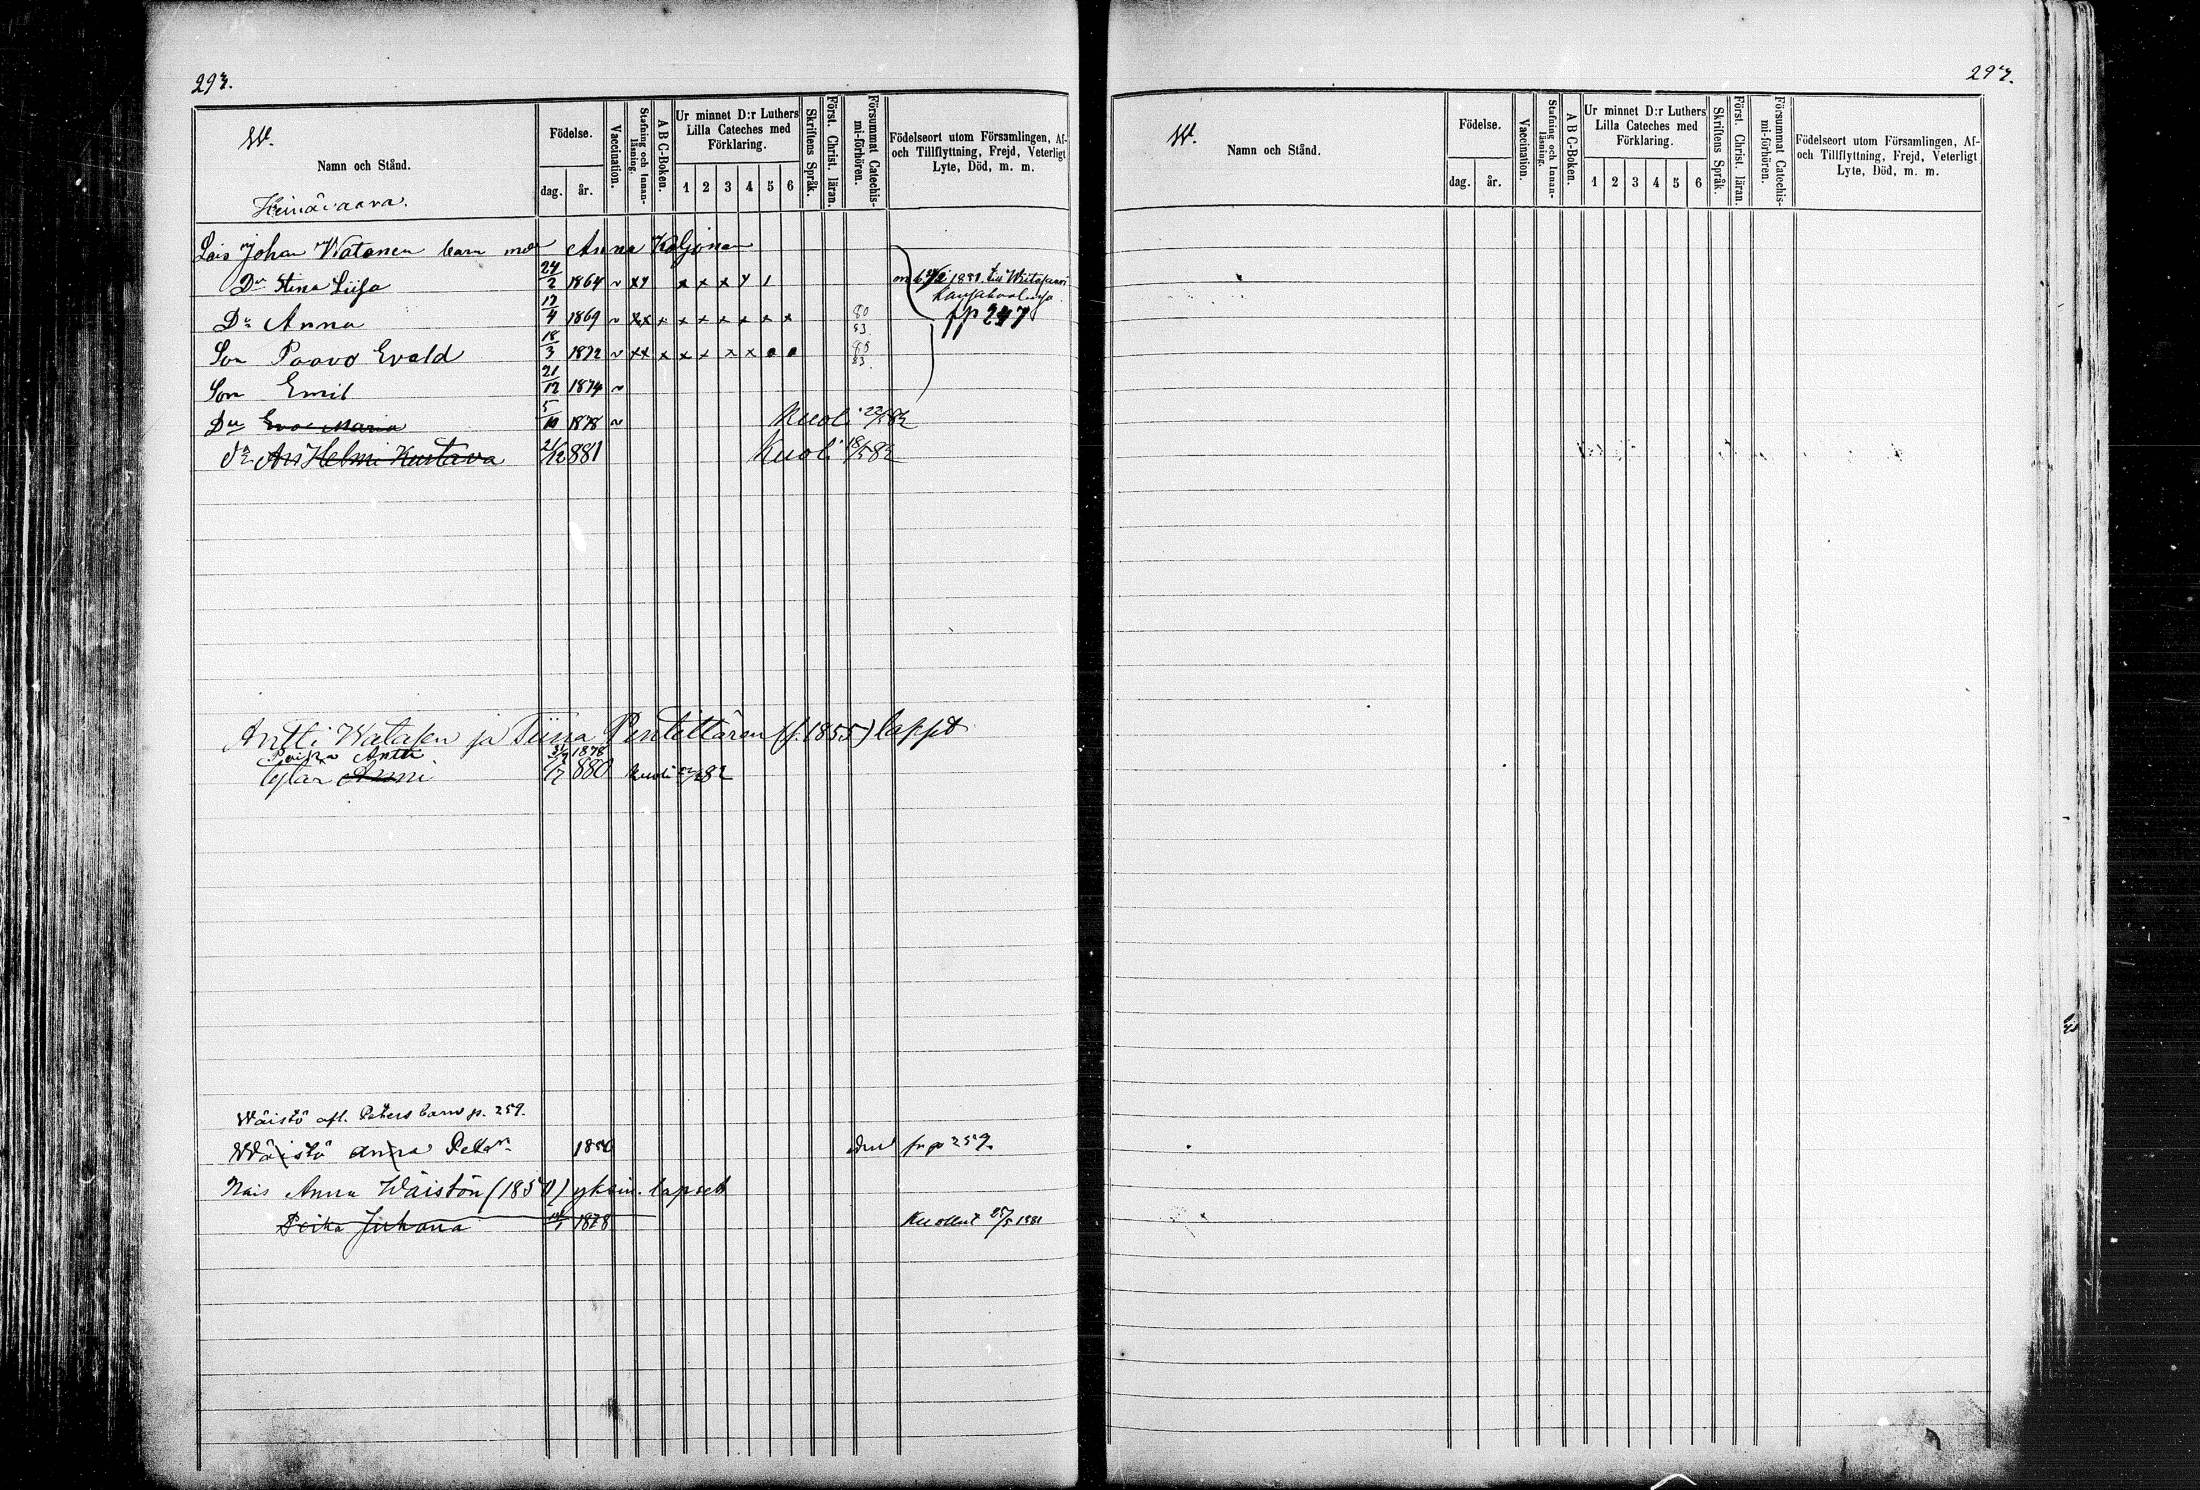 293.
W.
Namn och Stånd.
Heinävaara.
Födelse.
dag. år.
Vaccination.
Stafning och Innan-läsning.
A B C-Boken.
Ur minnet D:r Luthers
Lilla Cateches med
Förklaring.
1 2 3 4 5 6
Skriftens Språk.
Först. Christ. läran.
Försummat Catechis-mi-förhören.
Födelseort utom Församlingen, Af-
och Tillflyttning, Frejd, Veterligt
Lyte, Död, m. m.
Lois Johan Watanen barn med Anna Koljonen
Dr Stina Liisa 24/2 1864 ~ x y x x x y 1
Dr Anna 17/4 1869 ~ x x x x x x x x x 80 83
pp 247
Son Paavo Evald 18/3 1872 ~ x x x x x x x 83.
Son Emil 21/12 1874 ~
Dr Eva Maria 1878 ~ Kuoli 22/5 82
Dr Helmi Kustava 21/12 881 Kuoli 18/5 82
Antti Watasen ja Tiina Penttittären (s. 1855) lapset
Poika Antti 1878
Tytär Anni 1/7 880 Kuoli 82
Wäistö afl. Peters barn p. 259.
Wäistö Anna Pett:r 1850 fr p 259.
Nais Anna Wäistön (1850) yksin. lapset
Poika Juhana 1878 Kuollut 25/5 1881
293.
W.
Namn och Stånd.
Födelse.
dag. år.
Vaccination.
Stafning och Innan-läsning.
A B C-Boken.
Ur minnet D:r Luthers
Lilla Cateches med
Förklaring.
1 2 3 4 5 6
Skriftens Språk.
Först. Christ. läran.
Försummat Catechis-mi-förhören.
Födelseort utom Församlingen, Af-
och Tillflyttning, Frejd, Veterligt
Lyte, Död, m. m.